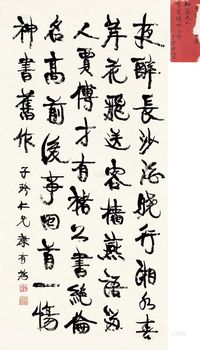 夜醉長沙酒曉行湘水春
岸花飛送客檣燕語留
人賈傅才有褚公書絕倫
名高前後事回首一傷
神書舊作
仁兄 康有為